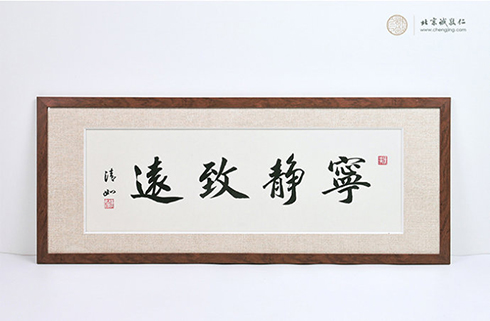 北京诚敬仁
www.chengjing.com
寧静致遠
清如